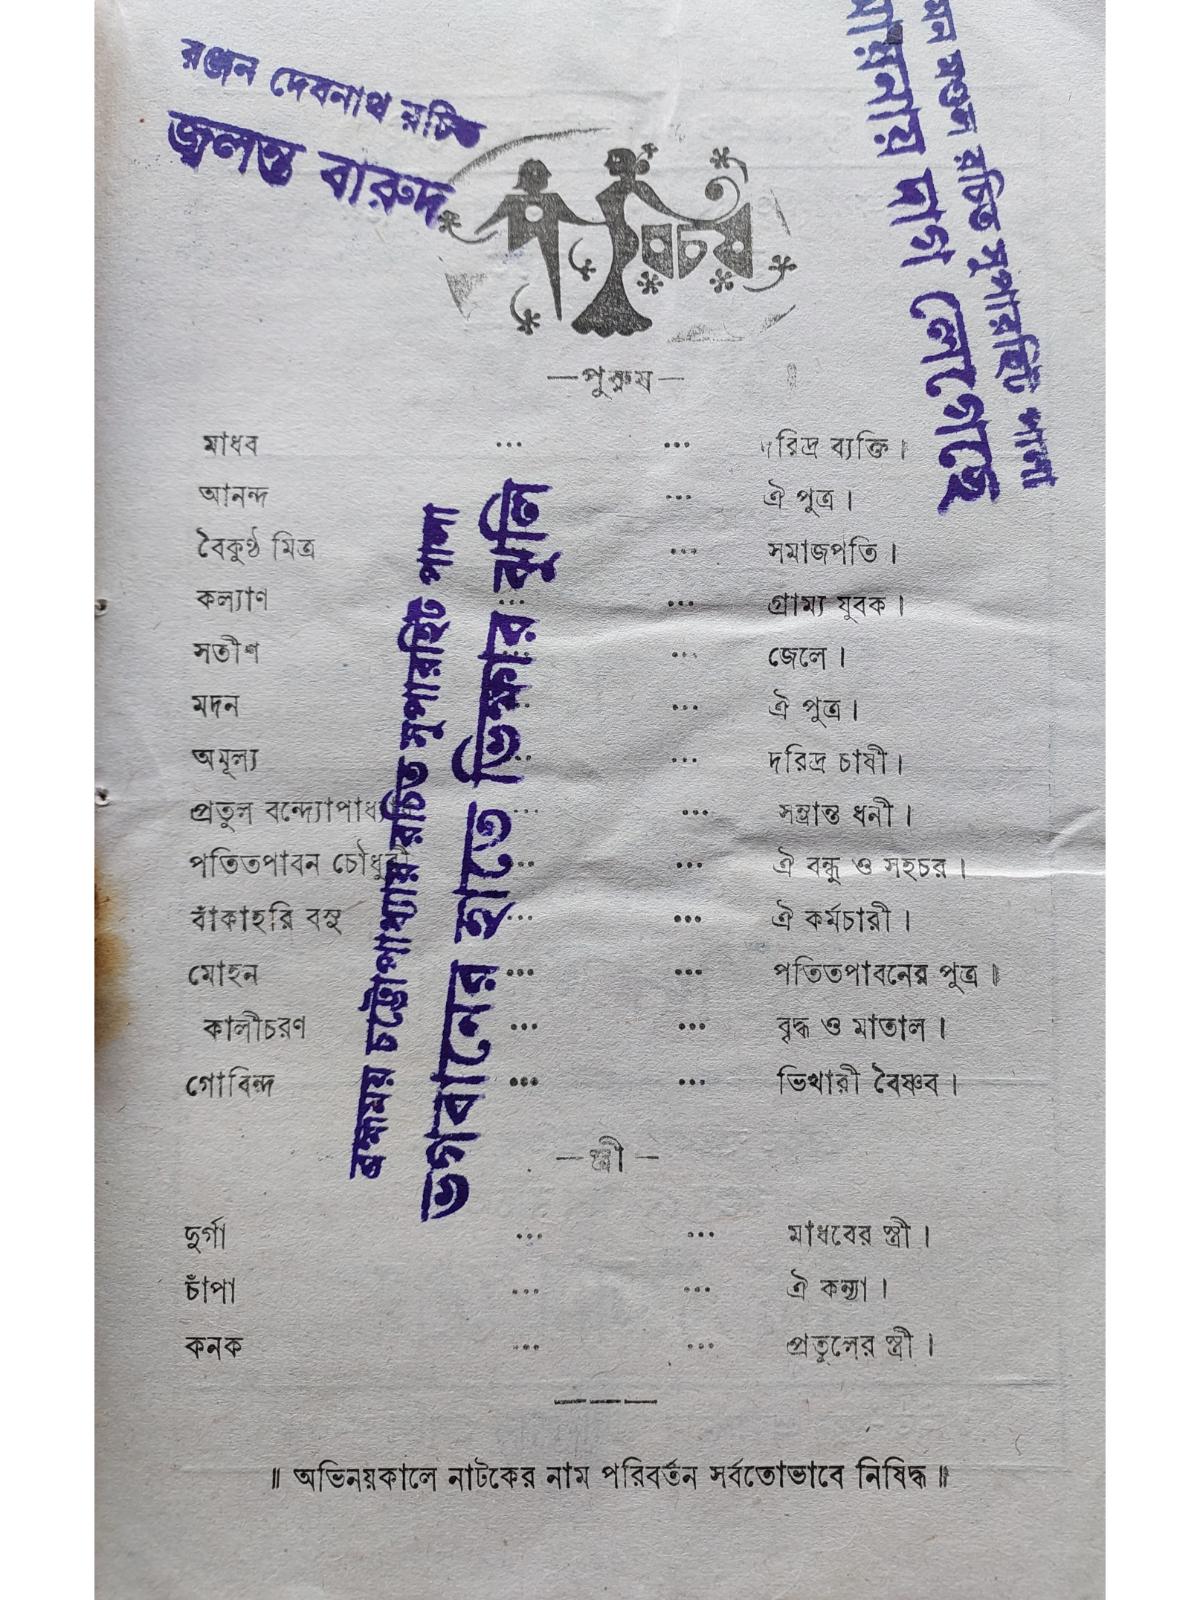 রঞ্জন দেবনাথ রচিত
জ্বলন্ত বারুদ
রচিত সুপারহিট পালা
আয়নায় দাগ লেগেছে
পরিচয়
—পুরুষ—
মাধব ... ... দরিদ্র ব্যক্তি।
আনন্দ ... ঐ পুত্র।
বৈকুণ্ঠ মিত্র ... সমাজপতি।
কল্যাণ ... ... গ্রাম্য যুবক।
সতীশ ... জেলে।
মদন ... ঐ পুত্র।
অমূল্য ... ... দরিদ্র চাষী।
প্রতুল বন্দ্যোপাধ্যায় ... ... সম্ভ্রান্ত ধনী।
পতিতপাবন চৌধুরী ... ... ঐ বন্ধু ও সহচর।
বাঁকাহরি বসু ... ... ঐ কর্মচারী।
মোহন ... ... পতিতপাবনের পুত্র।
কালীচরণ ... ... বৃদ্ধ ও মাতাল।
গোবিন্দ ... ... ভিখারী বৈষ্ণব।
ব্রহ্মময় চট্টোপাধ্যায় রচিত সুপারহিট পালা
ভগবানের হাতে ভিক্ষার ঝুলি
—স্ত্রী—
দুর্গা ... ... মাধবের স্ত্রী।
চাঁপা ... ... ঐ কন্যা।
কনক ... ... প্রতুলের স্ত্রী।
॥ অভিনয়কালে নাটকের নাম পরিবর্তন সর্বতোভাবে নিষিদ্ধ॥